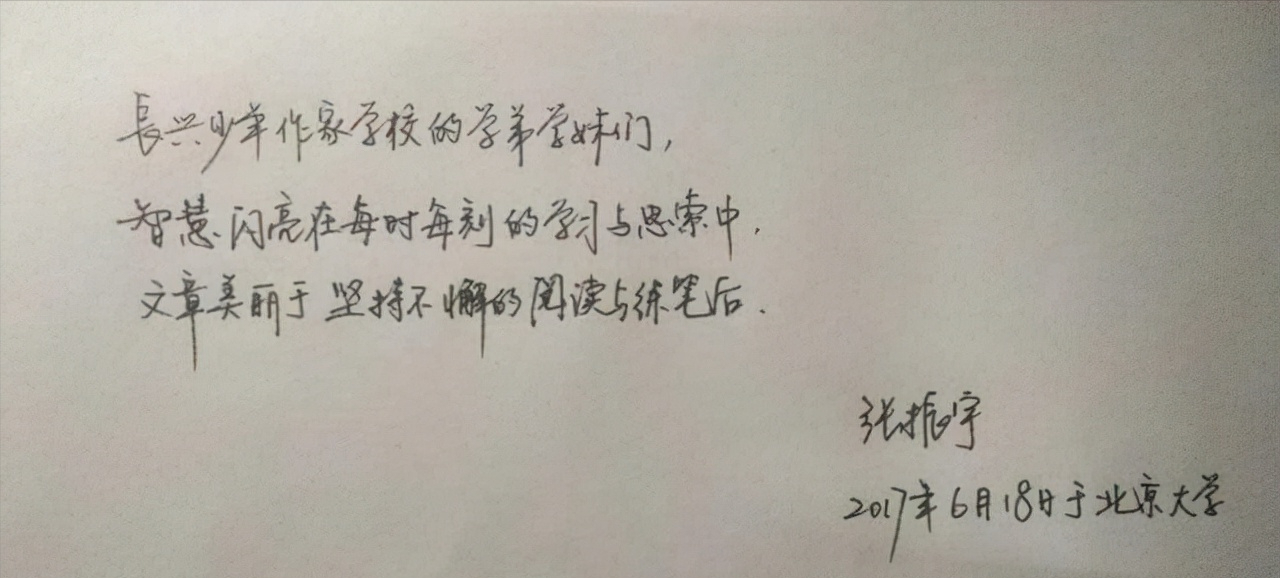 長兴少年作家学校的学弟学妹们,
智慧闪亮在每时每刻的学习与思索中.
文章美丽于坚持不懈的阅读与练笔后.
张振宇
2017年6月18日于北京大学